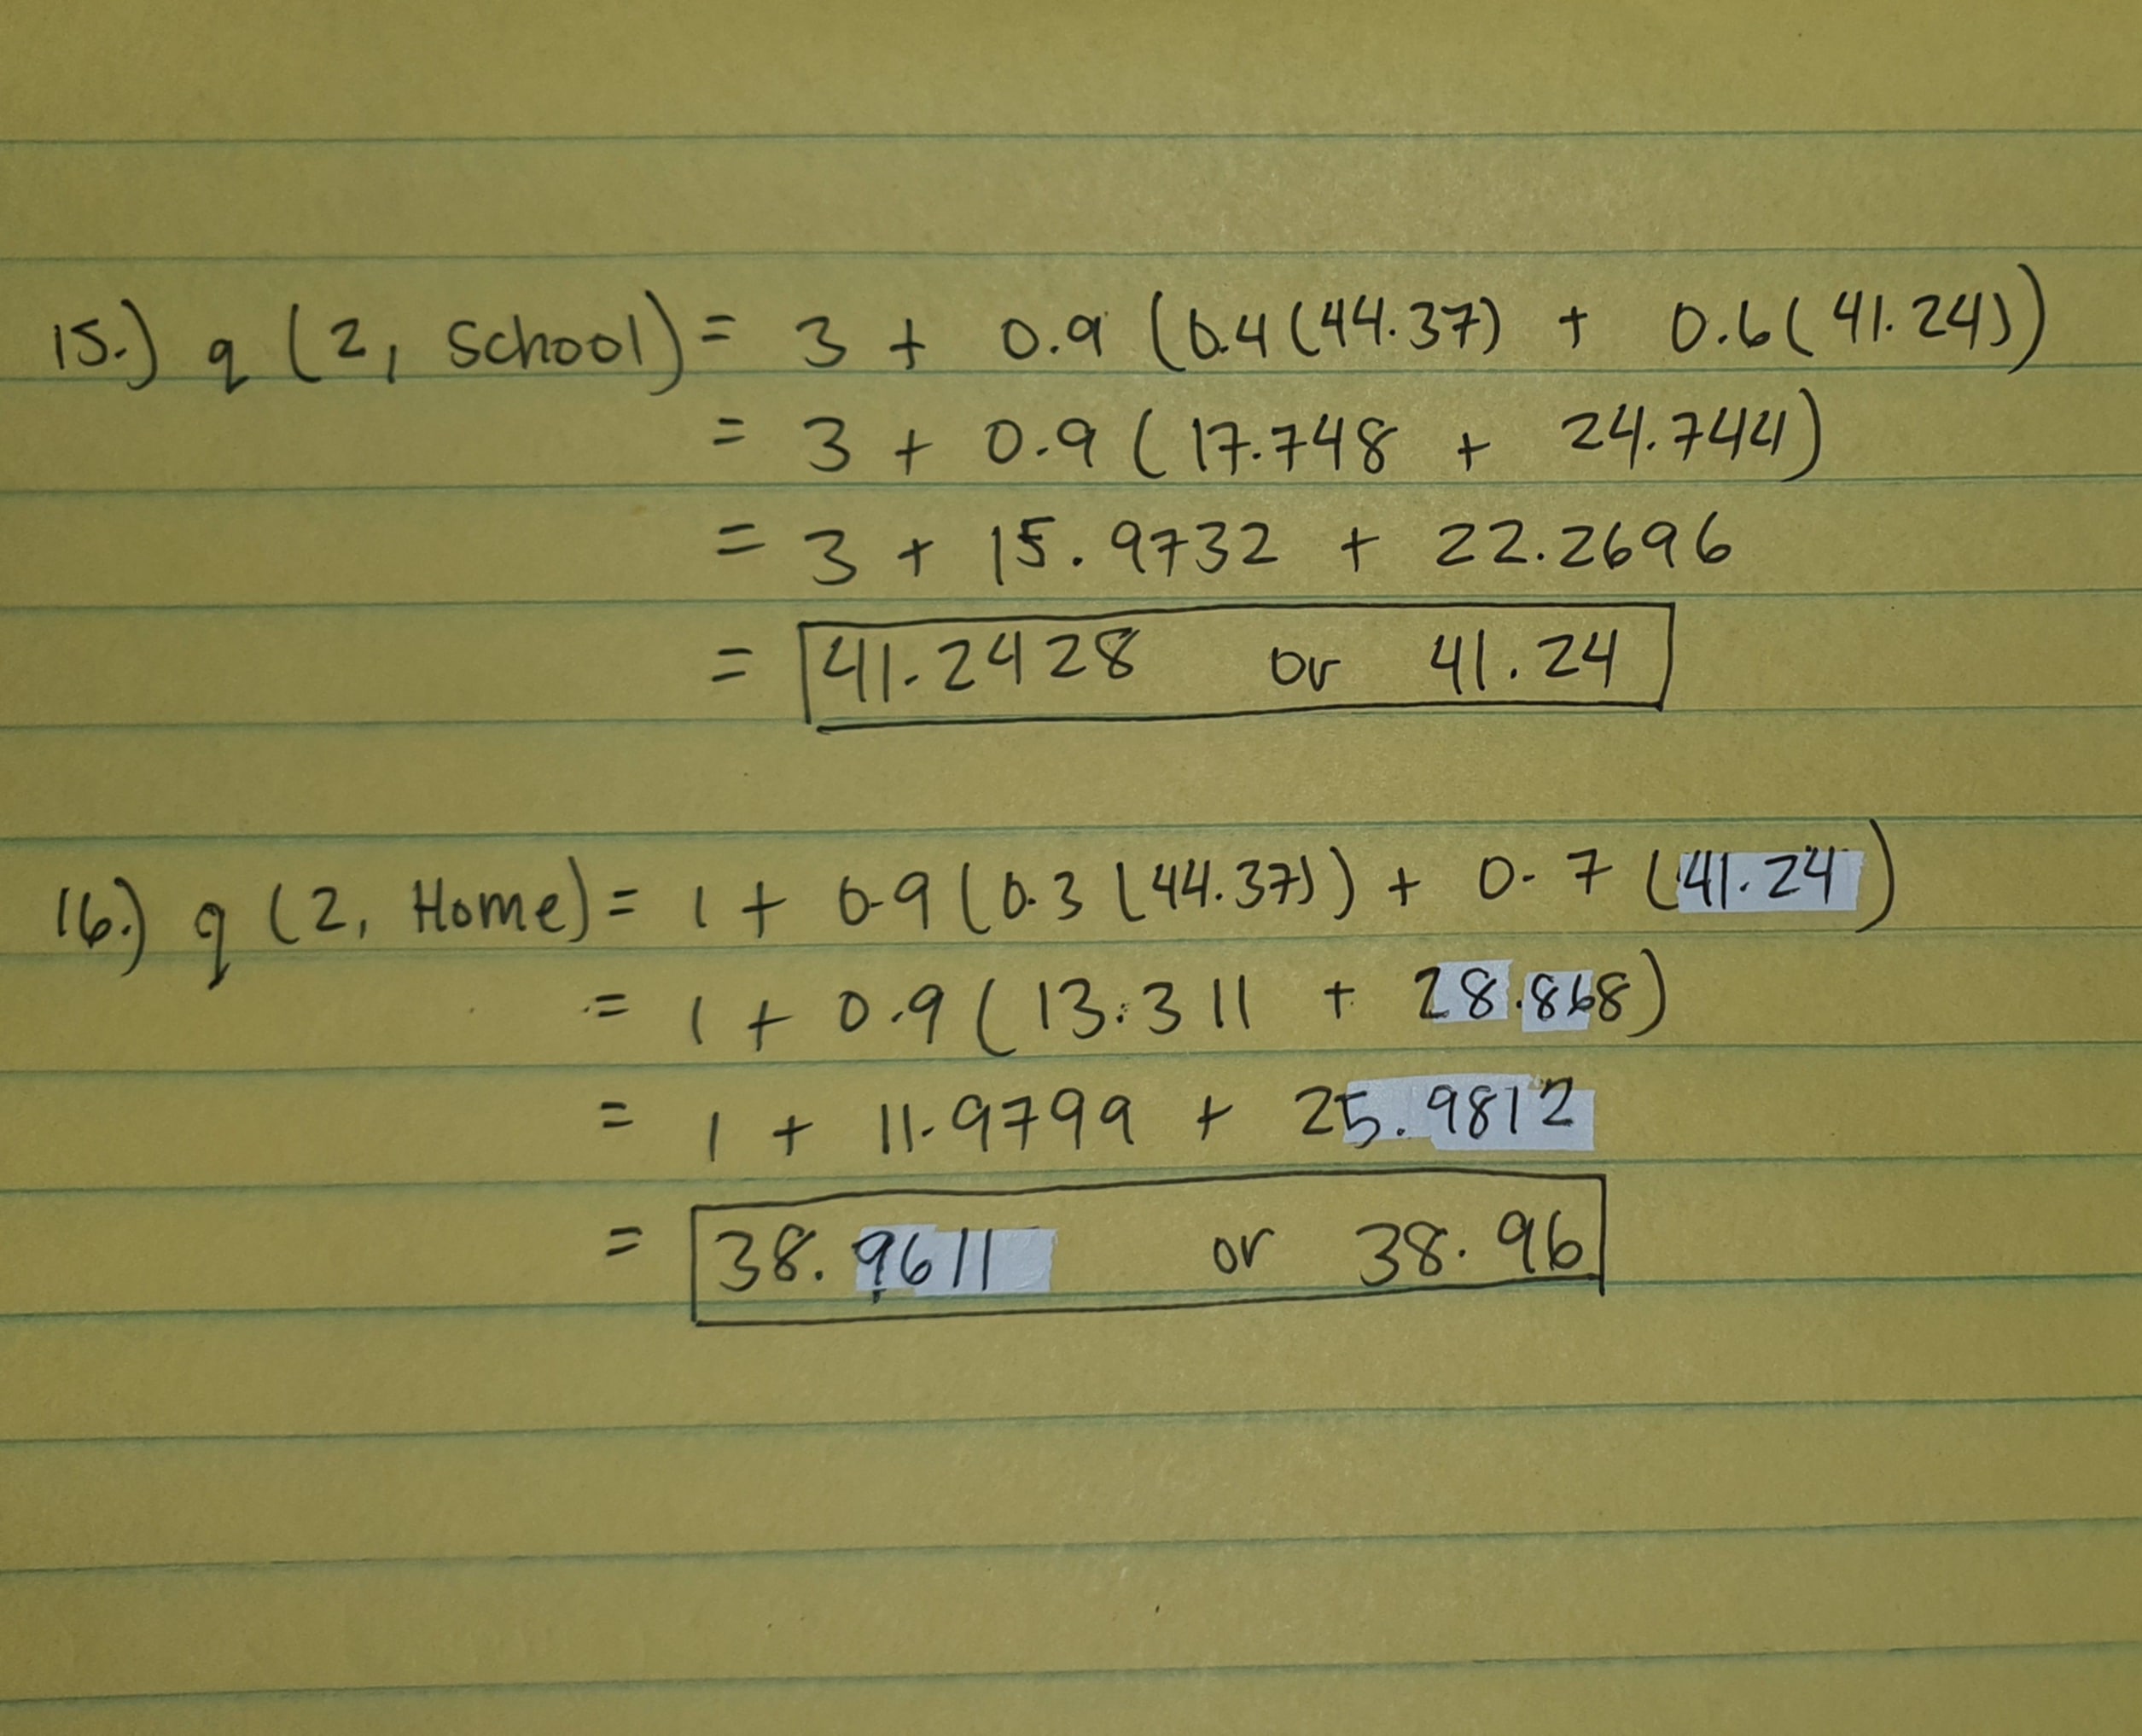 15.) q (2, School) = 3 + 0.9 (0.4(44.37) + 0.6(41.24))
= 3 + 0.9 (17.748 + 24.744)
= 3 + 15.9732 + 22.2696
= 41.2428 or 41.24
16.) q (2, Home) = 1 + 0.9(0.3(44.37)) + 0.7(41.24)
= 1 + 0.9(13.311 + 28.868)
= 1 + 11.9799 + 25.9812
= 38.9611 or 38.96